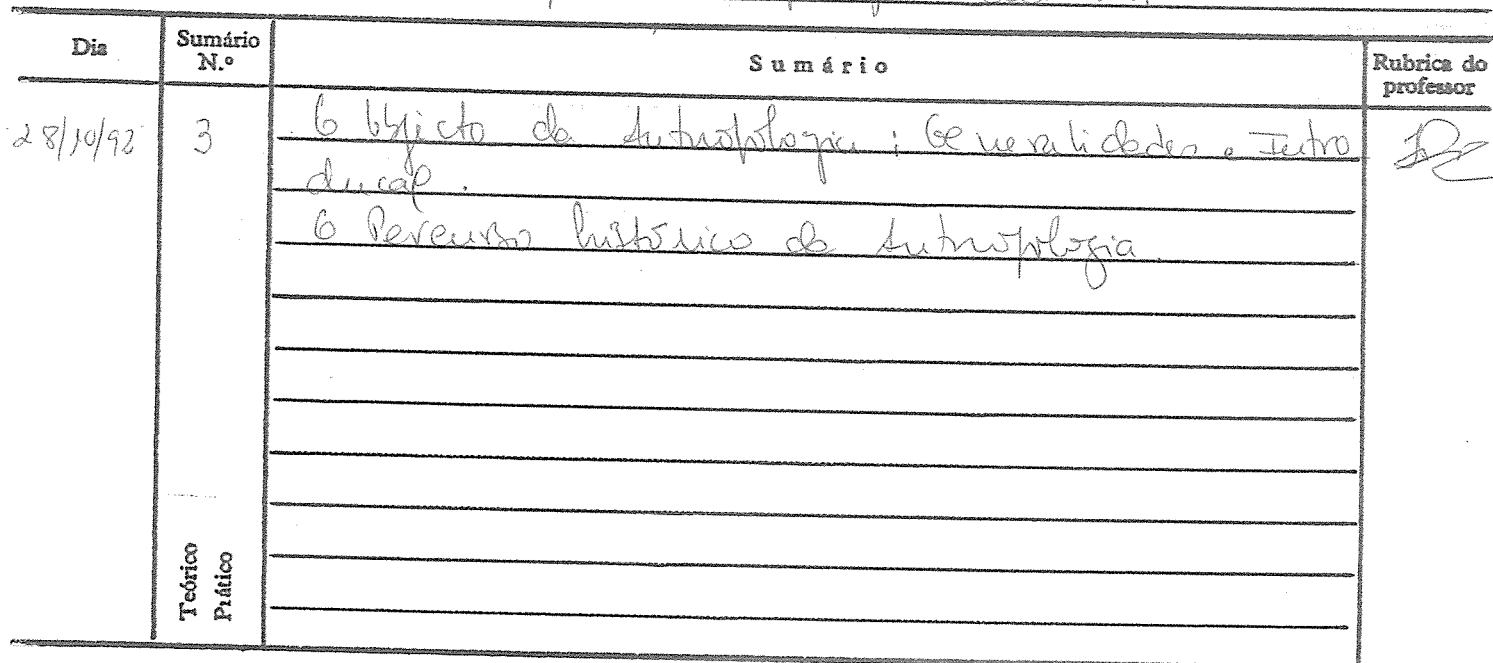 Dia Sumário N.º Sumário Rubrica do professor
28/10/92 3 O Objecto da Antropologia: Generalidades e Intro
dução.
O Percurso histórico da Antropologia.
Teórico
Prático